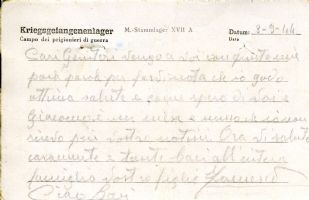 Kriegsgefangenenlager M.-Stammlager XVII A Datum: 3-9-44
Campo dei prigionieri di guerra Data
Cari Genitori vengo a voi con queste mie
poche parole per farvi noto che io godo
ottima salute e come spero di voi e
Giacomo è un mese e che non
ricevo più vostre notizie Ora vi saluto
caramente e tanti baci all'intera
famiglia vostro figlio
Ciao Baci